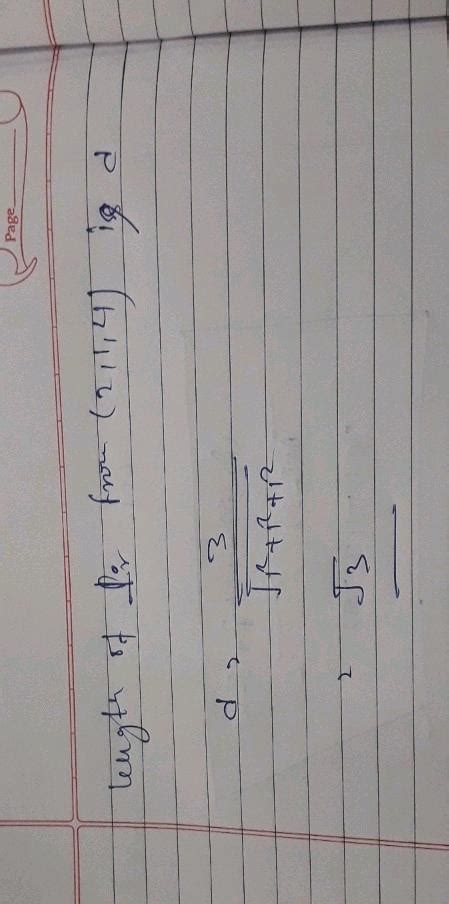 Page
length of ⊥r from (2,1,4) is d
d = 3 / √1²+1²+1²
= √3